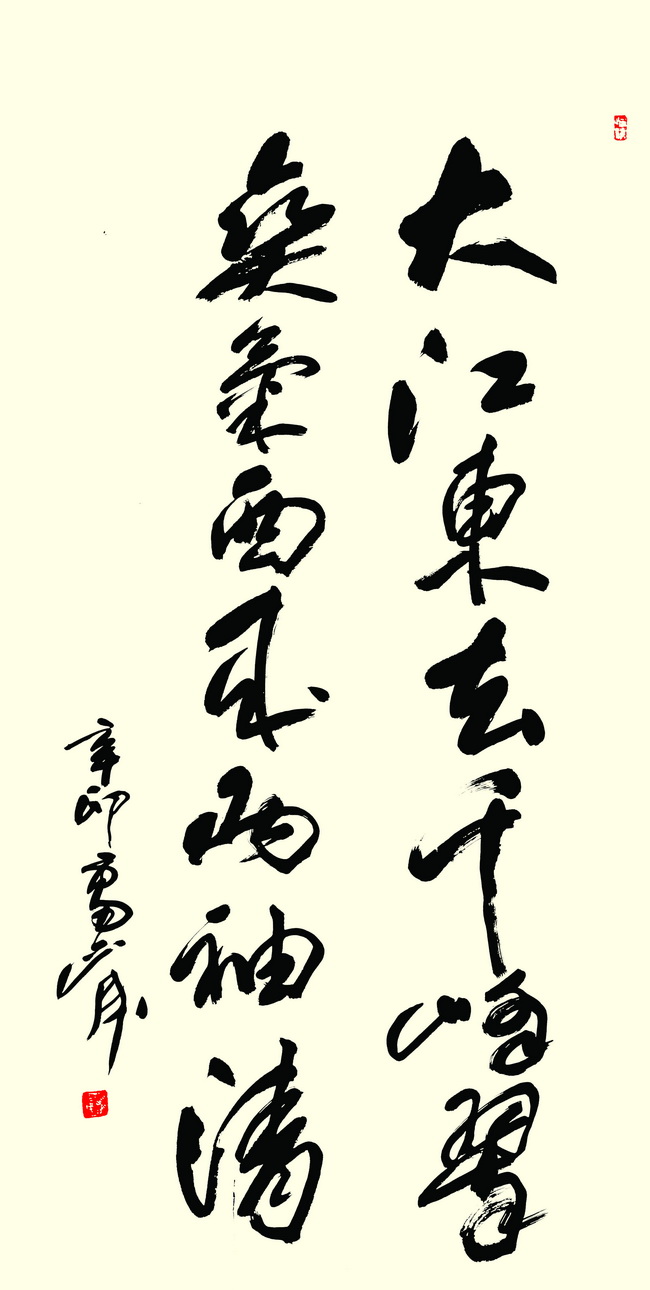 大江東去千峰翠
爽氣西來兩袖清
辛卯